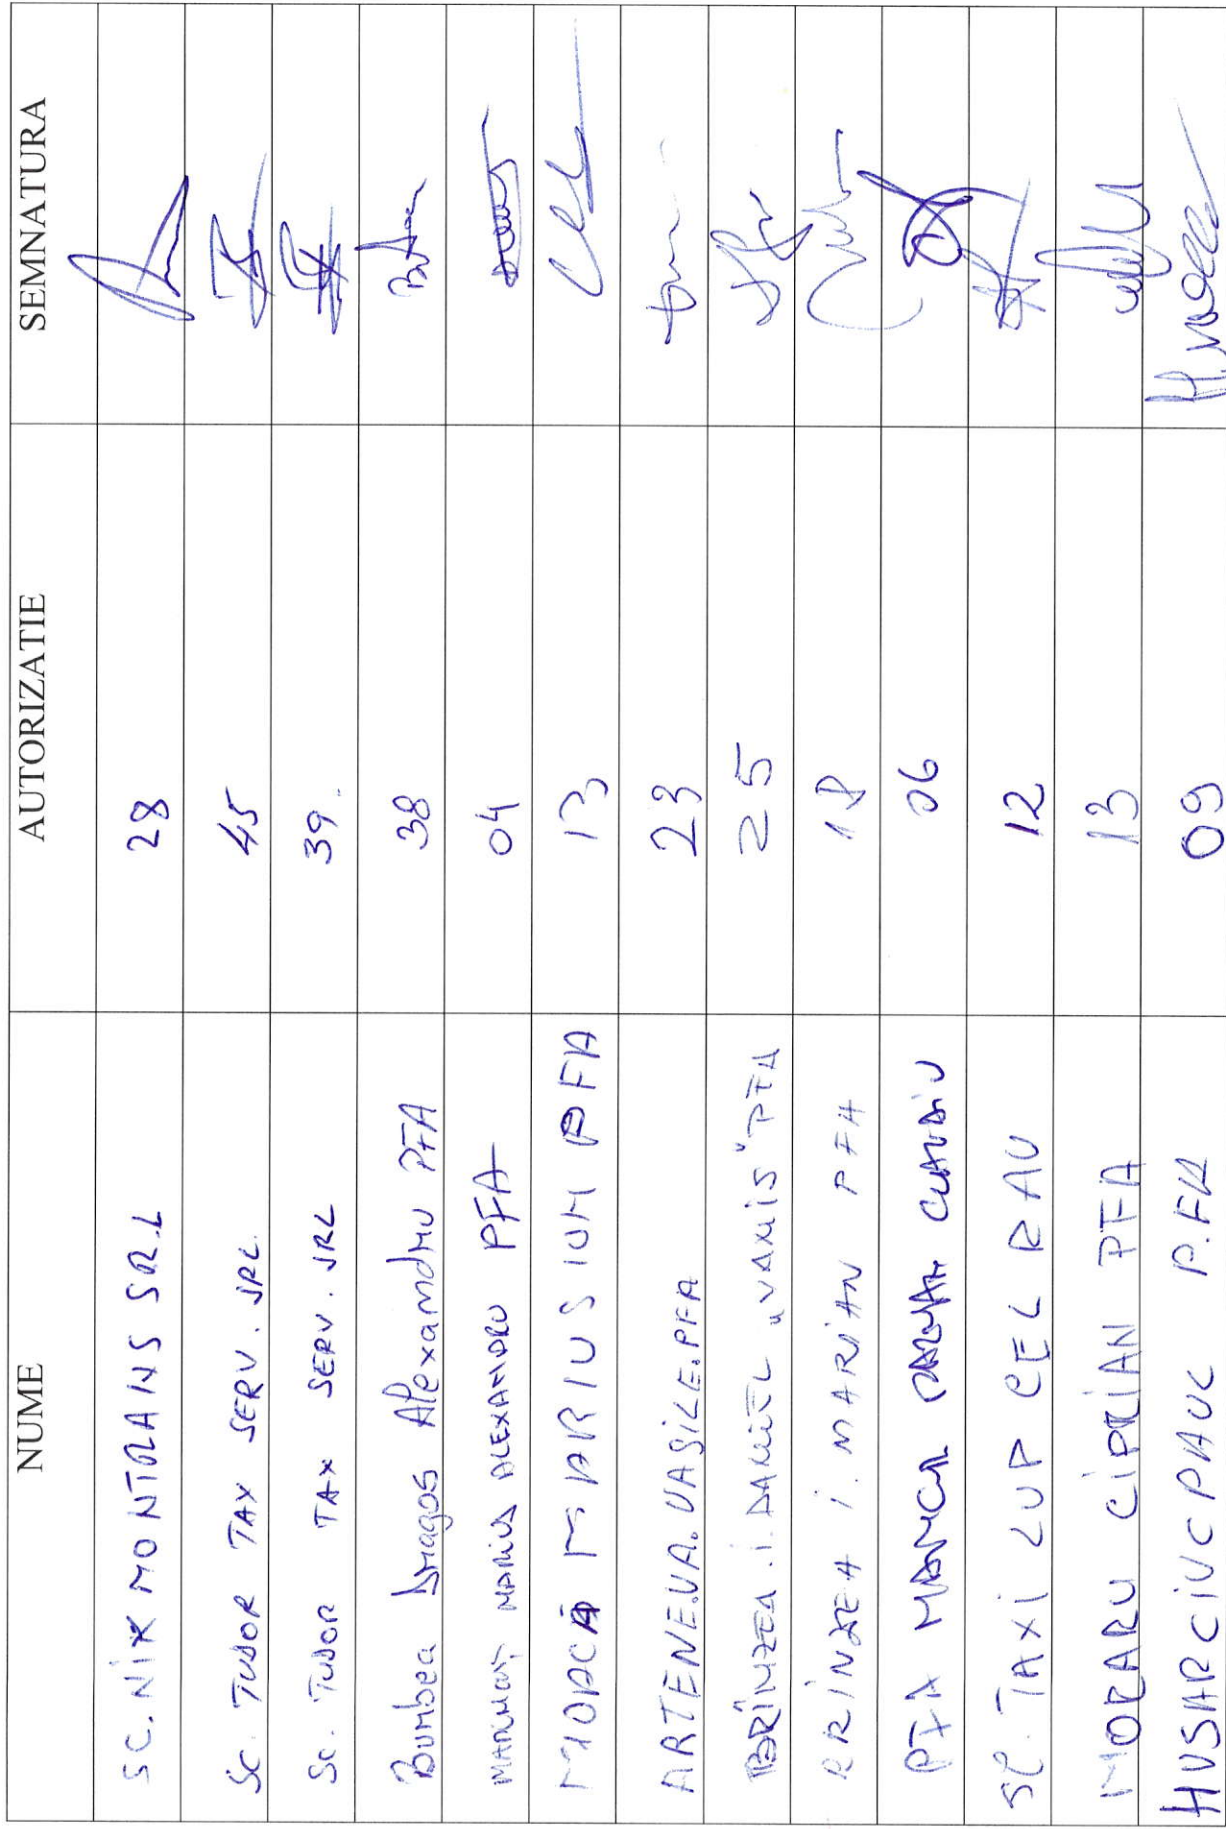 NUME AUTORIZATIE SEMNATURA
SC. NIK MONTRANS SRL 28
SC. TUDOR TAX SERV. SRL 45
SC. TUDOR TAX SERV. SRL 39.
Bumbea Dragos Alexandru PFA 38
MARIUS ALEXANDRU PFA 04
MARIUS ION PFA
ARTENE.VA.VASILE.PFA 23
BRÎNZEA.I.DANIEL „VANIS" PFA 25
BRÎNZEA I. MARIAN PFA 18
PFA CLAUDIU 06
SC. TAXI LUP CEL RAU 12
MORARU CIPRIAN PFA 13
HUSARCIUC PAUL P.FA 09